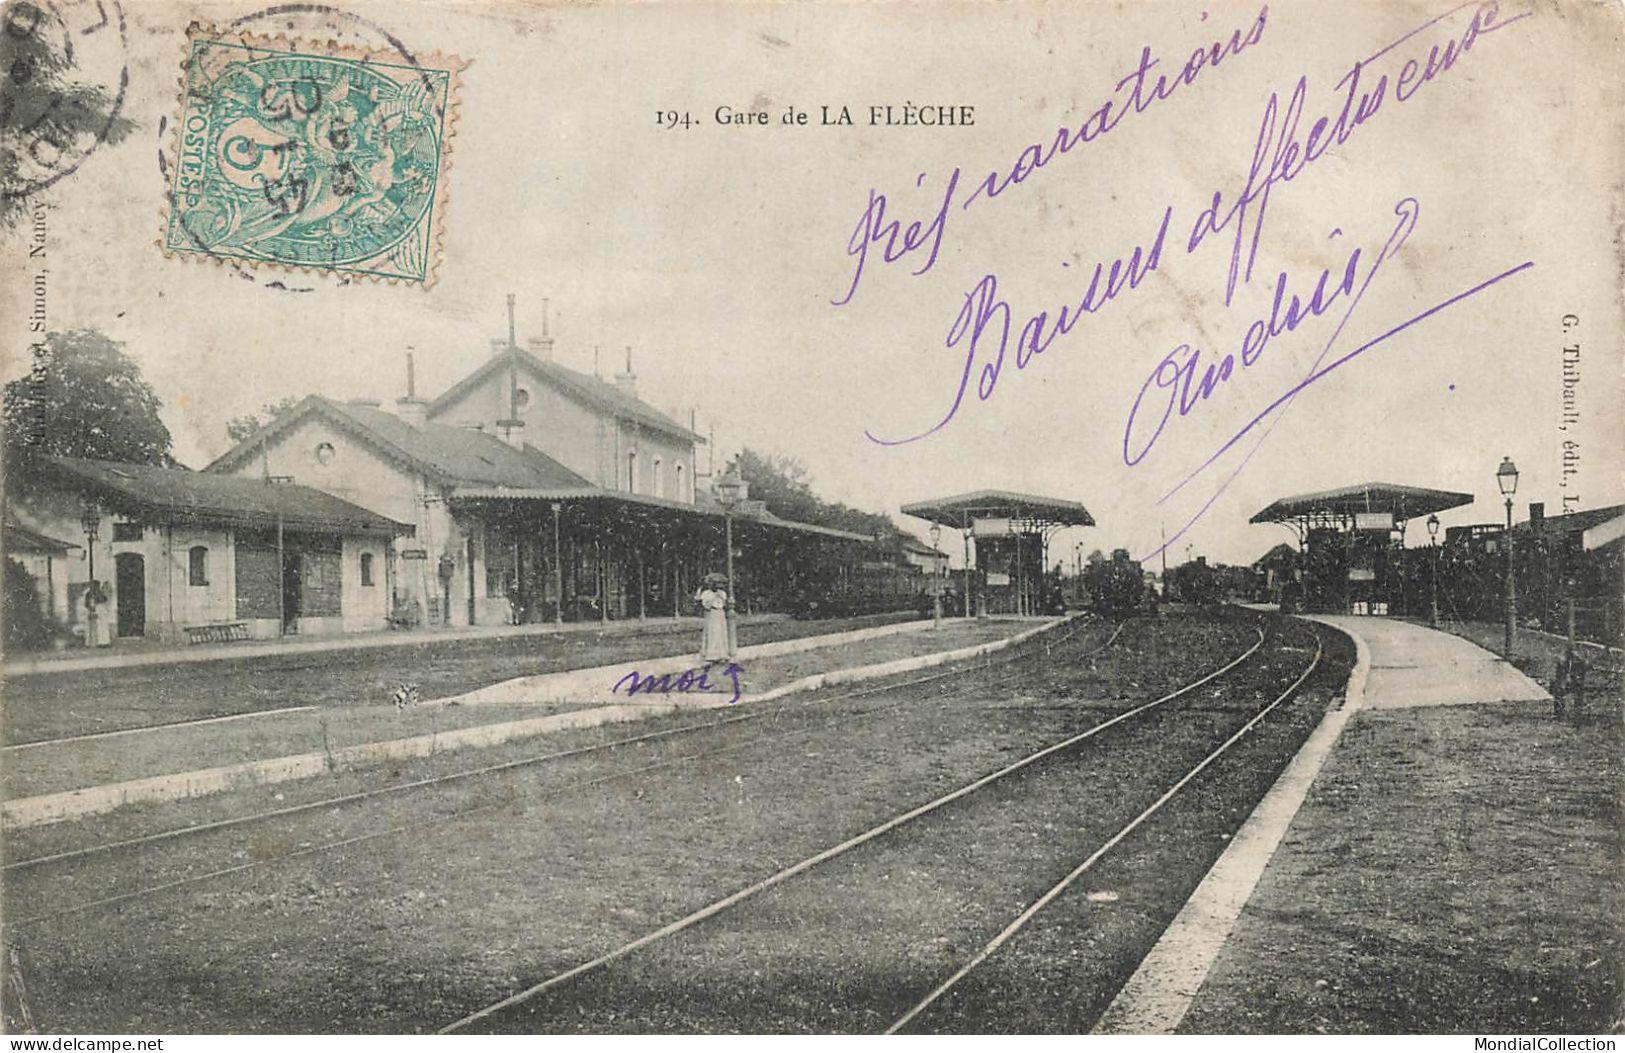 194. Gare de LA FLÈCHE
POSTES
5
05
Préparations
Baisers affectueux
moi
et Simon, Nancy
G. Thibault, édit., La
www.delcampe.net
MondialCollection